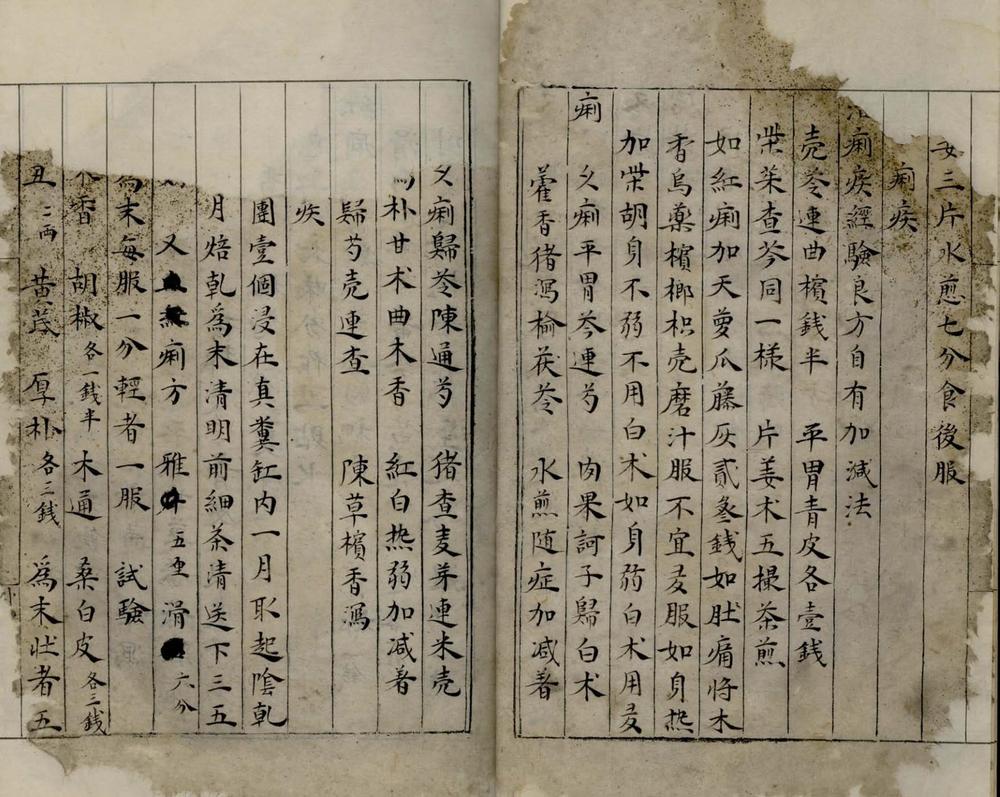 三片水煎七分食後服
痢疾
痢疾經驗良方自有加減法
壳苓連曲檳銭半　平胃青皮各壹銭
柴茱查芩同一樣　片姜术五撮茶煎
如紅痢加天蘿瓜藤灰貳叄銭如肚痛将木
香烏藥檳榔枳壳磨汁服不宜服如身热
加柴胡身不弱不用白术如身弱白术用
痢　又痢平胃芩連芍　肉果訶子歸白术
藿香猪瀉榆茯苓　水煎随症加减著
又痢歸苓陳通芍　猪查麦芽連米壳
朴甘术曲木香　紅白热弱加减著
歸芍壳連查　陳草檳香瀉
疾
團壹個浸在真糞缸内一月取起陰乾
月焙乾為末清明前細茶清送下三五
又痢方　雅　五　滑　六分
為末每服一分輕者一服　試驗
香　胡椒各一銭半　木通　桑白皮各三銭
丑二両　黄芪　厚朴各三銭　為末壮者五